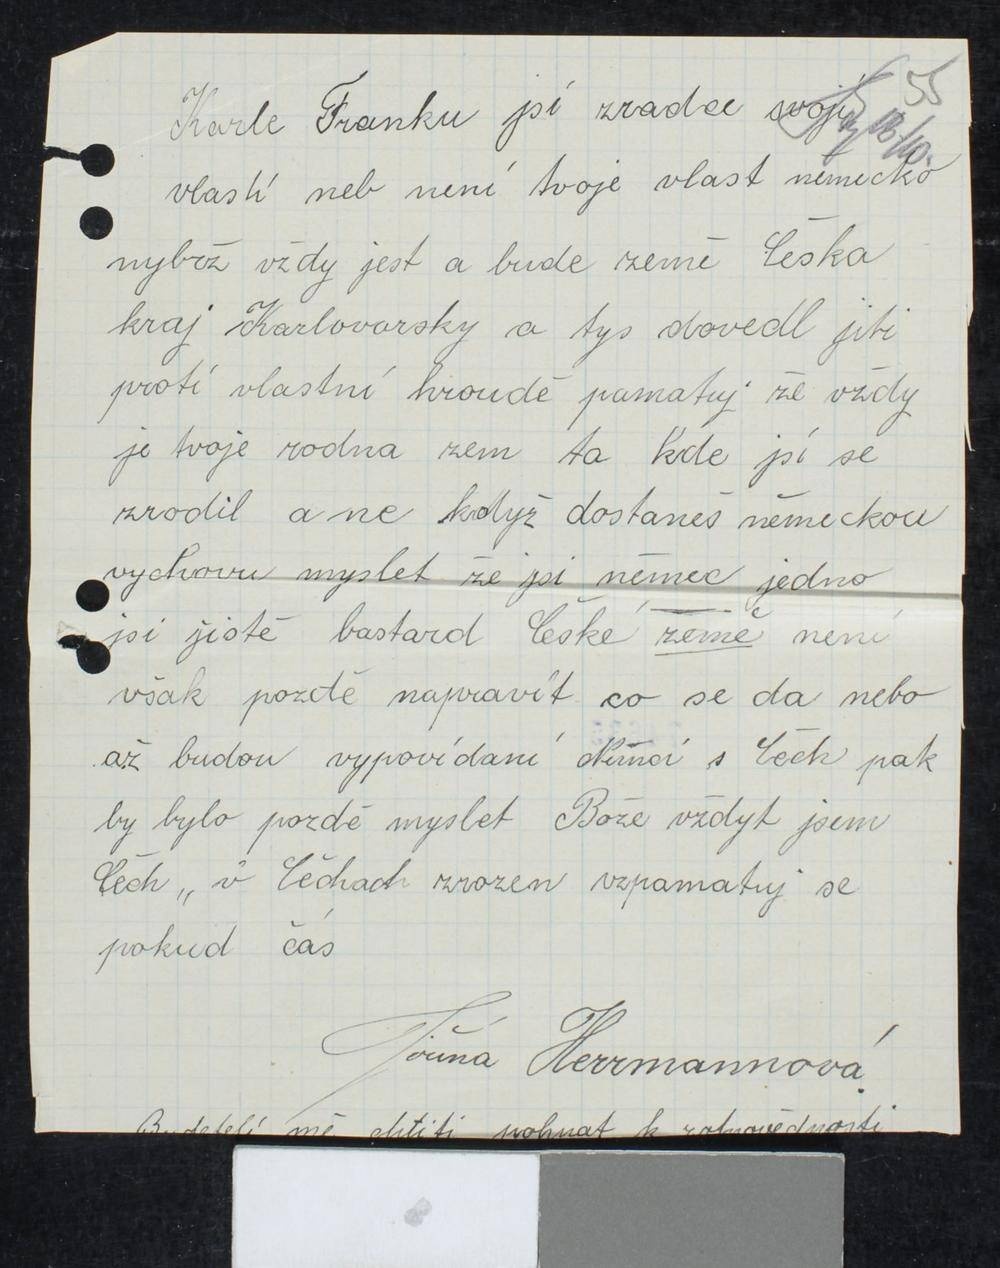 55
Karle Franku jsí zradce svojí
vlasti neb není tvoje vlast německo
nybrž vždy jest a bude země Češka
kraj Karlovarsky a tys dovedl jiti
protí vlastní hroudě pamatuj že vždy
je tvoje rodna zem ta kde jsí se
zrodil a ne když dostaneš německou
vychovu myslet že jsi němec jedno
jsi jistě bastard České země není
však pozdě napravít co se da nebo
až budou vypovídaní Němci s Čéch pak
by bylo pozdě myslet Bože vždyt jsem
Čech „ v Čéchach zrozen vzpamatuj se
pokud čás
Herrmannová
Budeteli mě chtiti pohnat k zotpovědnosti